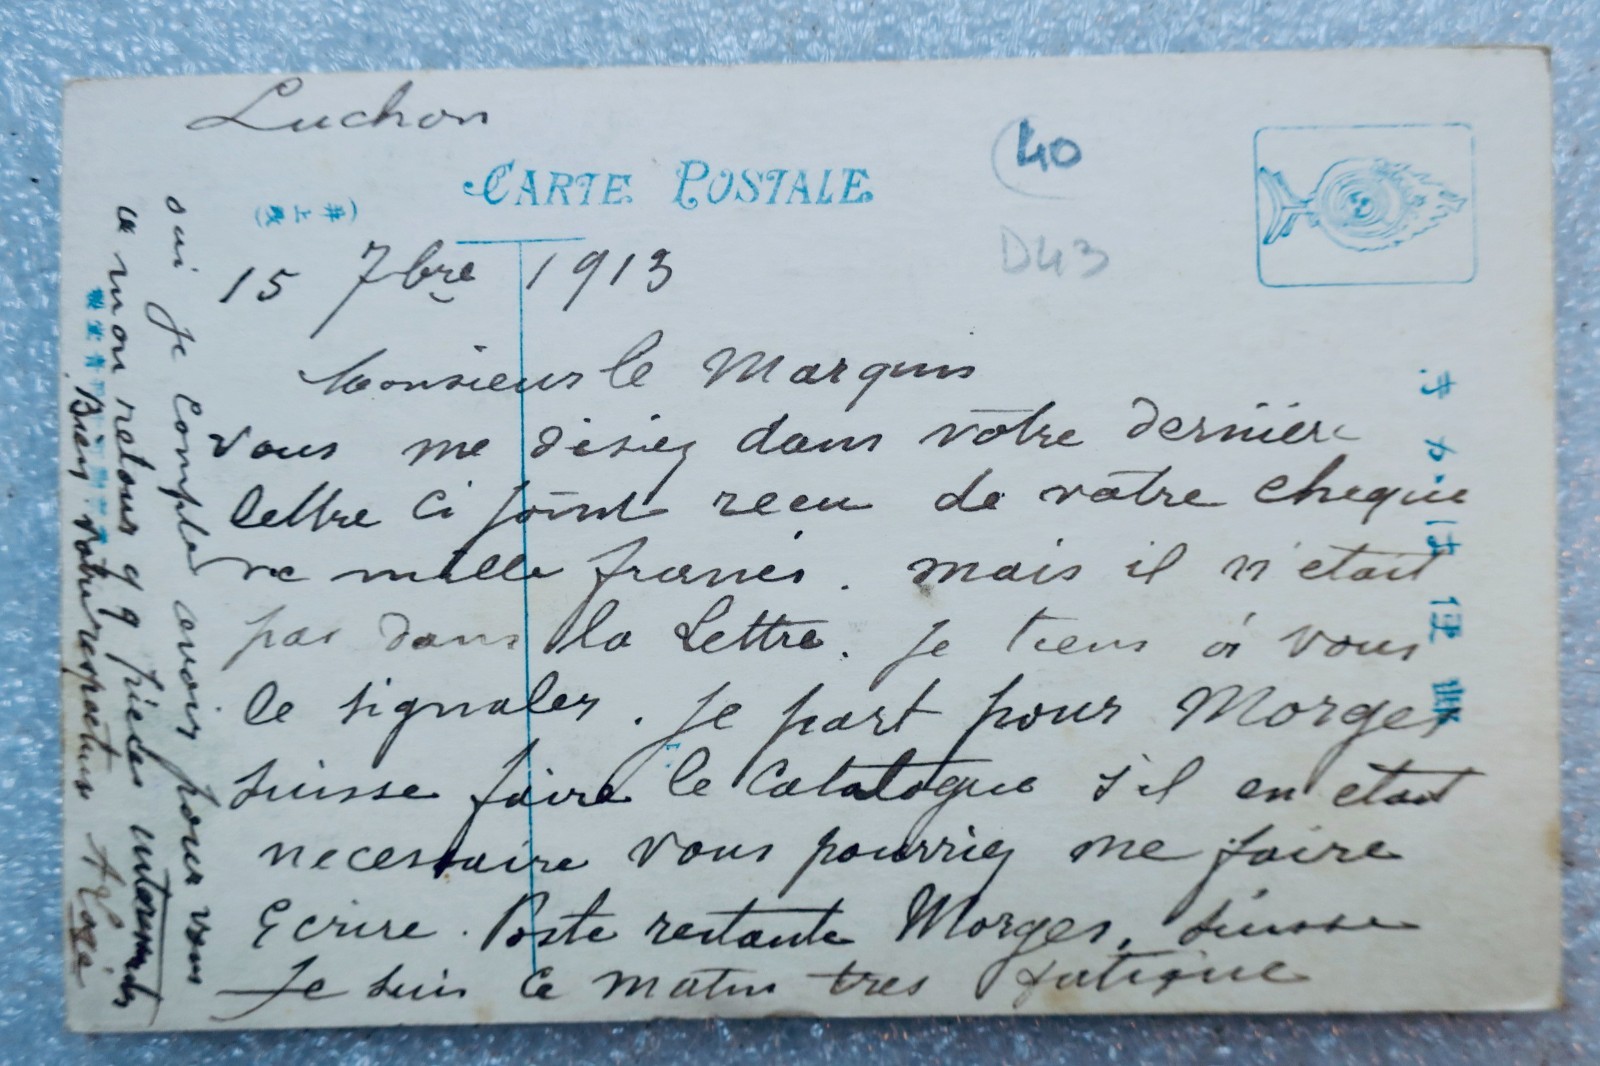 Luchon
CARTE POSTALE
40
D43
(井上製)
15 7bre 1913
Monsieur le Marquis
Vous me disiez dans vôtre dernière
lettre ci joint recu de vôtre cheque
de mille francs. mais il n'etait
pas dans la Lettre. Je tiens à vous
le signaler. Je part pour Morges
Suisse faire le Catalogue s'il en etait
necessaire vous pourriez me faire
Ecrire. Poste restante Morges. Suisse
Je suis ce matin tres fatigué
sui je compte avoir pour vous
a mon retour q q pièces interessantes
Bien votre respectueux
きかは便郵